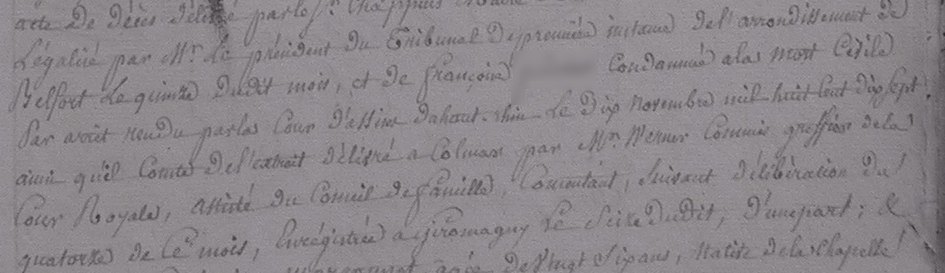 acte de décès délivré par le Sr. Chappuis Maire
Légalisé par Mr. Le président du Tribunal de première instance de l'arrondissement de
Belfort Le quinze dudit mois, et de françoise condamnée a la mort Civile
Par arrêt rendu par la Cour d'assise du haut-rhin Le dix novembre mil huit Cent dix Sept.
ainsi qu'il Conste de l'extrait délivré a Colmar par Mr. Werner Commis greffier de la
Cour Royale, assisté du Conseil de famille, Consentant, Suivant délibération du
quatorze de Ce mois, Enrégistrée a giromagny Le Seize dudit, d'une part; &
agée de Vingt Six ans, Native de la Chapelle